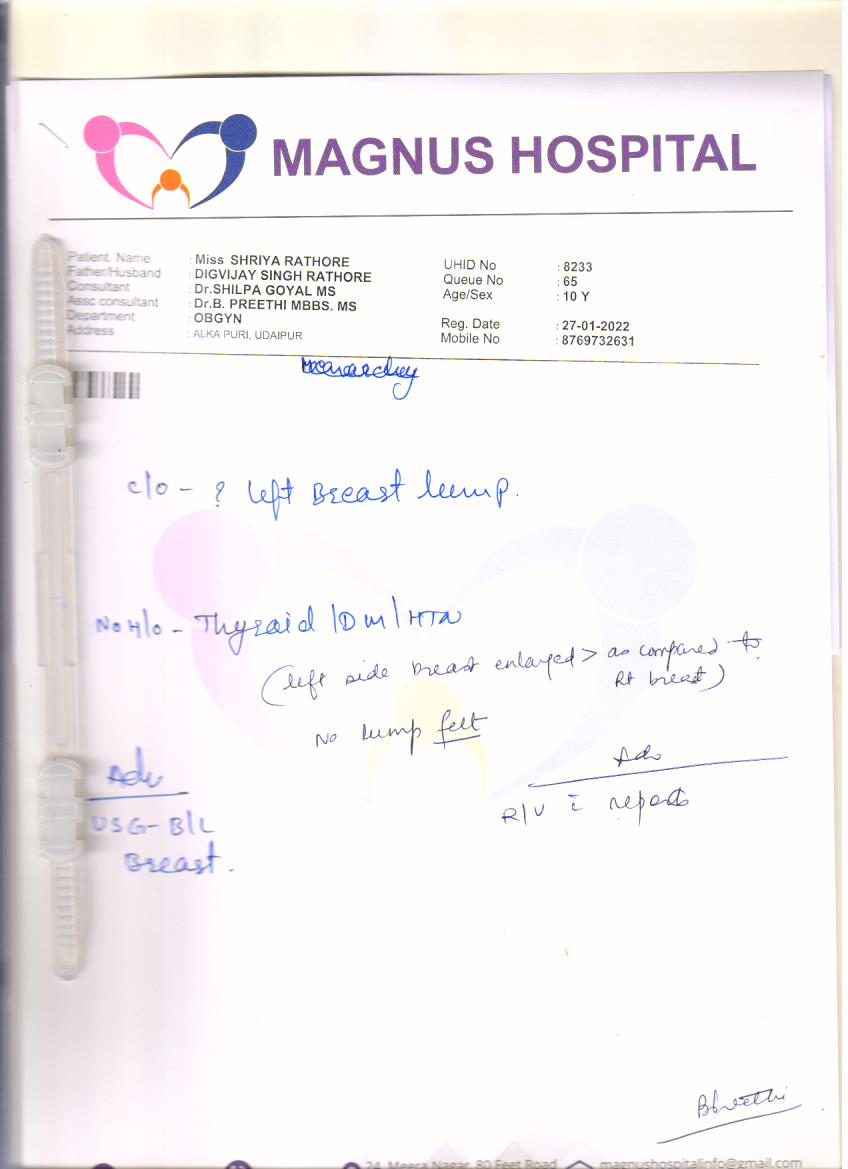 MAGNUS HOSPITAL
Patient. Name : Miss SHRIYA RATHORE
Father/Husband : DIGVIJAY SINGH RATHORE
Consultant : Dr.SHILPA GOYAL MS
Assc consultant : Dr.B. PREETHI MBBS. MS
Department : OBGYN
Address : ALKA PURI, UDAIPUR
UHID No : 8233
Queue No : 65
Age/Sex : 10 Y
Reg. Date : 27-01-2022
Mobile No : 8769732631
c/o - ? left Breast lump.
No H/o - Thyroid /DM/HTN
(left side breast enlarged > as compared to
Rt breast)
No lump felt
Adv
USG- B/L
Breast.
Adv
R/V c̄ reports
BPreethi
24, Meera Nagar, 80 Feet Road
magnushospitalinfo@gmail.com